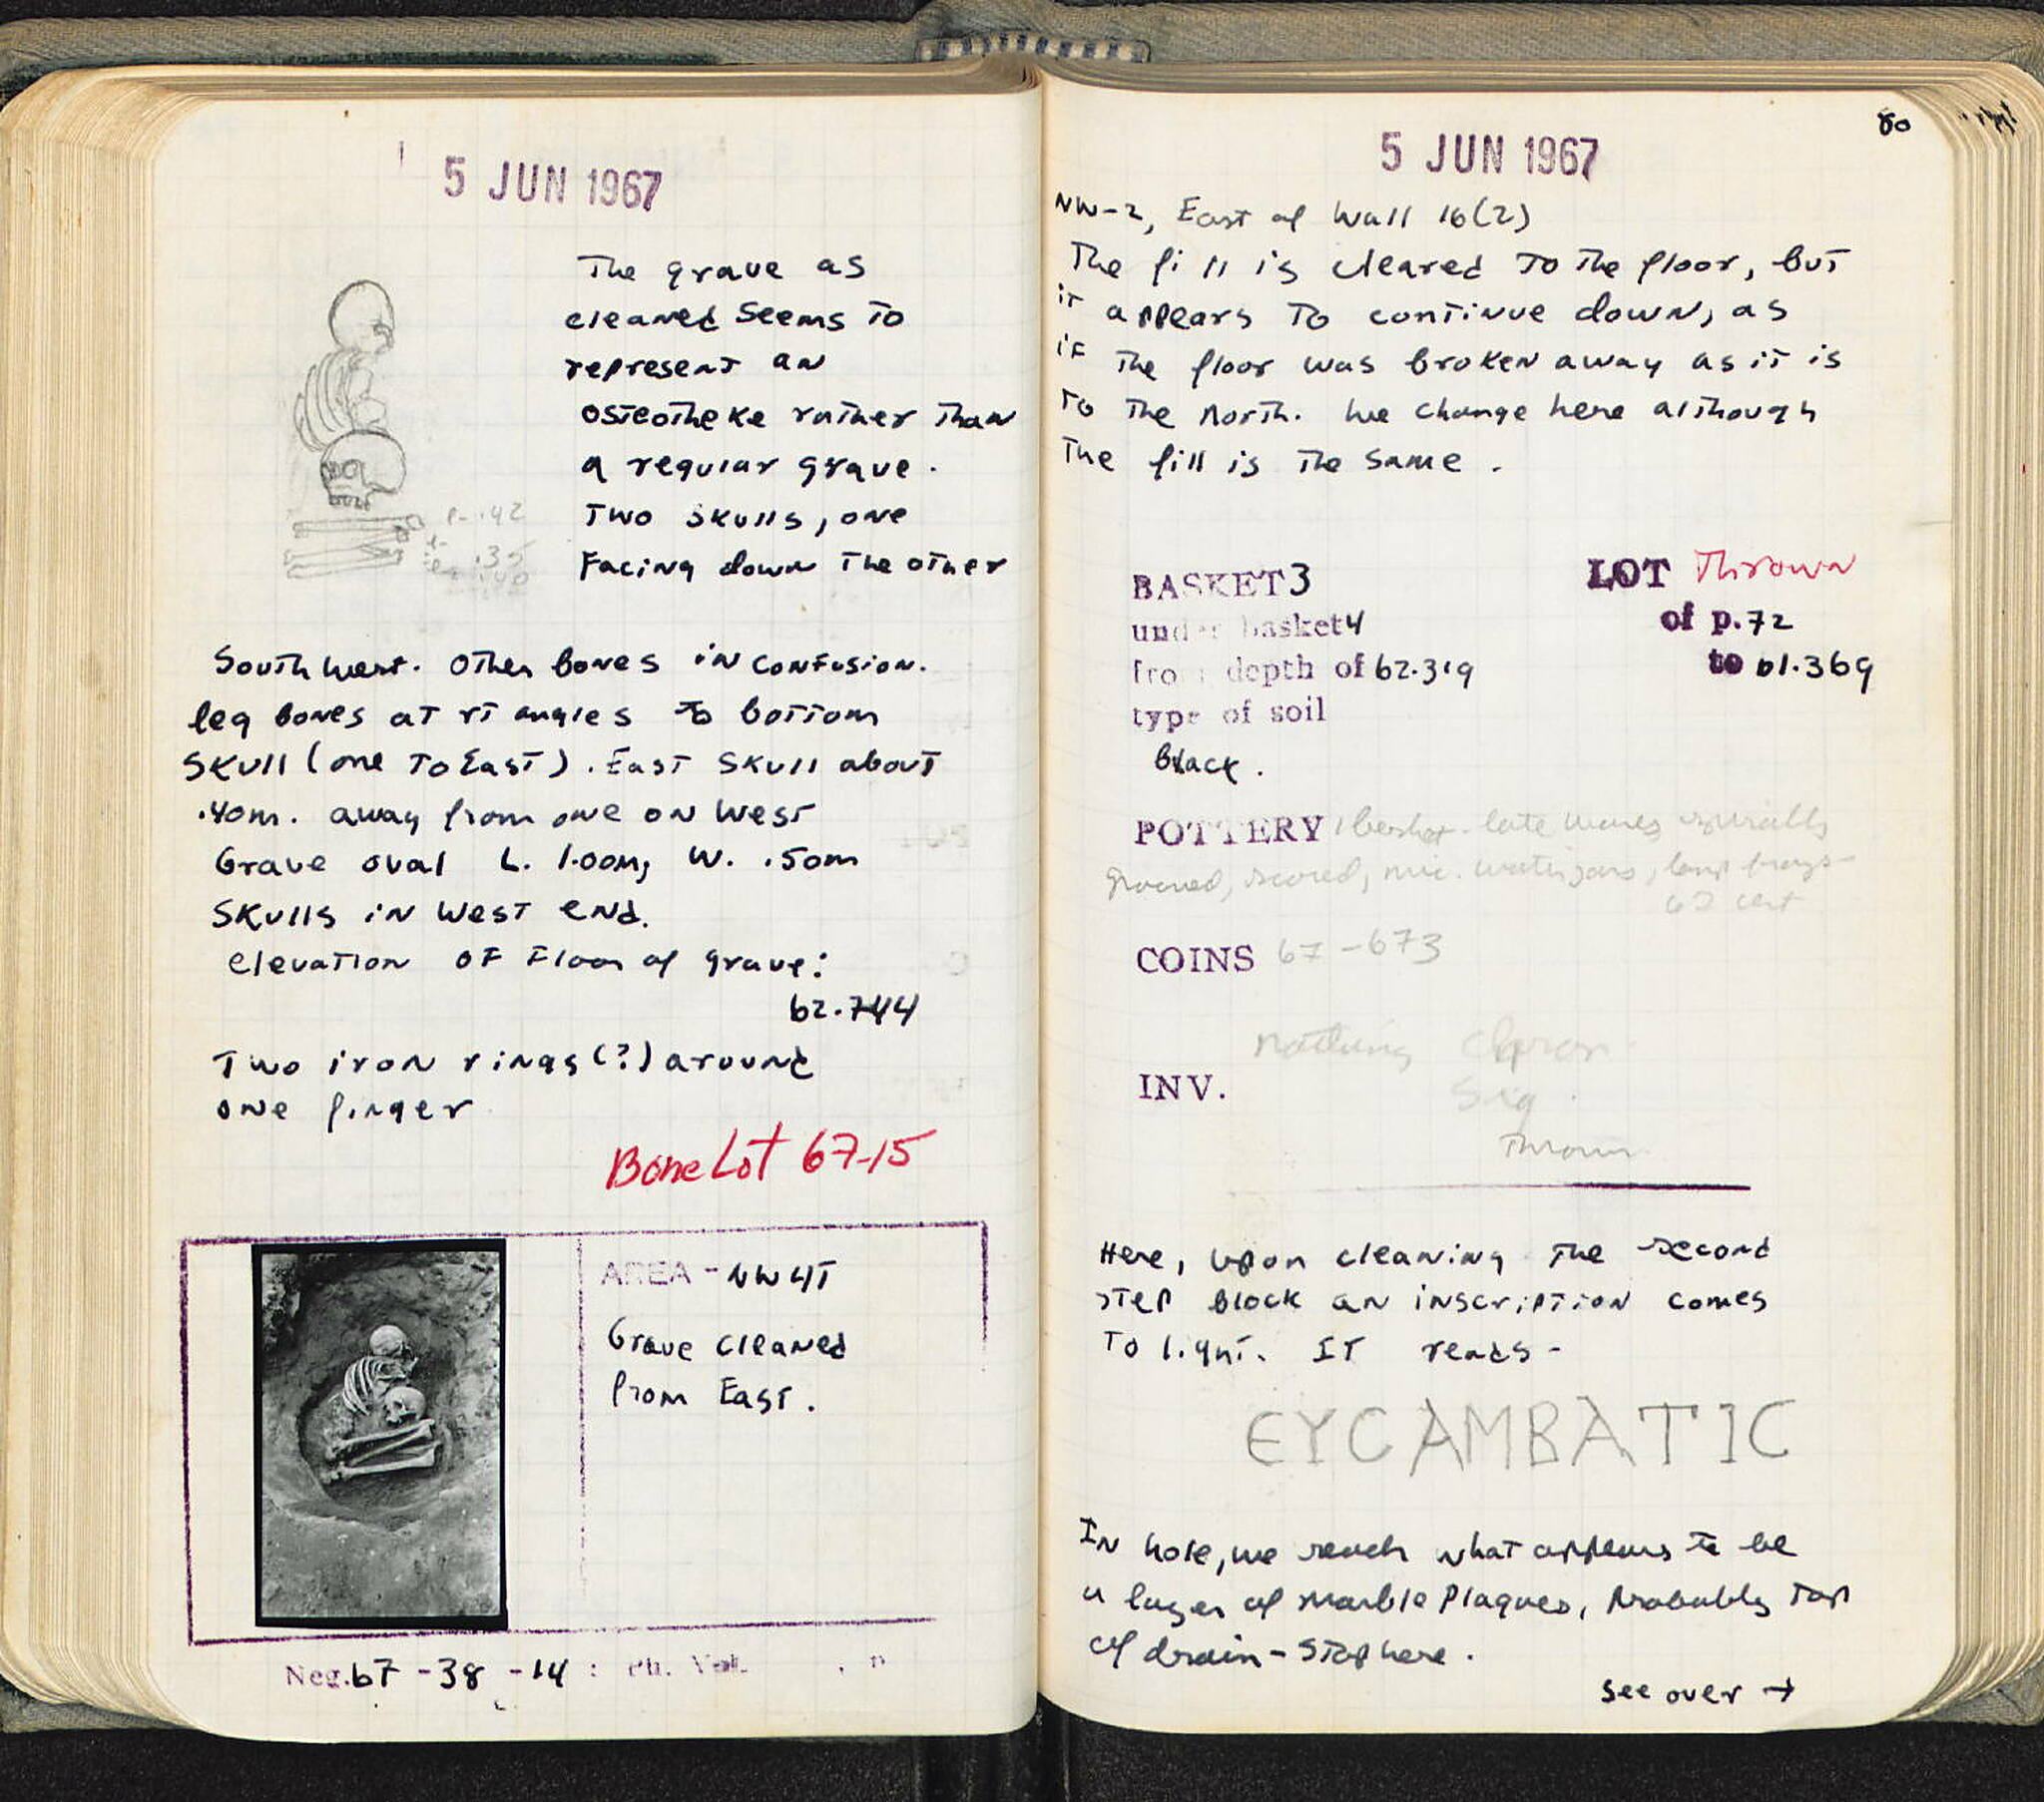 5 JUN 1967
The grave as
cleaned seems to
represent an
osteotheke rather than
a regular grave.
Two skulls, one
Facing down the other
.42
.35
.40
South west. Other bones in confusion.
leg bones at rt angles to bottom
skull (one to East). East skull about
.40m. away from one on west
Grave oval L. 1.00m, W. .50m
Skulls in West end.
elevation of Floor of grave:
62.744
Two iron rings (?) around
one finger
Bone Lot 67-15
AREA - NW 4T
Grave cleaned
from East.
Neg. 67 - 38 - 14 : Ph. Vol. , p
80
5 JUN 1967
NW-2, East of Wall 16(2)
The fill is cleared to the floor, but
it appears to continue down, as
if the floor was broken away as it is
to the North. We change here although
the fill is the same.
BASKET 3 LOT Thrown
under basket 4 of p. 72
from depth of 62.319 to 61.369
type of soil
black.
POTTERY 1 basket - late wares
grooved, scored, mic. water jars, lamp frags
COINS 67 - 673
nothing
INV.
Sig
Thrown
Here, upon cleaning the second
step block an inscription comes
to light. It reads -
EYCAMBATIC
In hole, we reach what appears to be
a layer of marble Plaques, Probably top
of drain - Stop here.
see over →